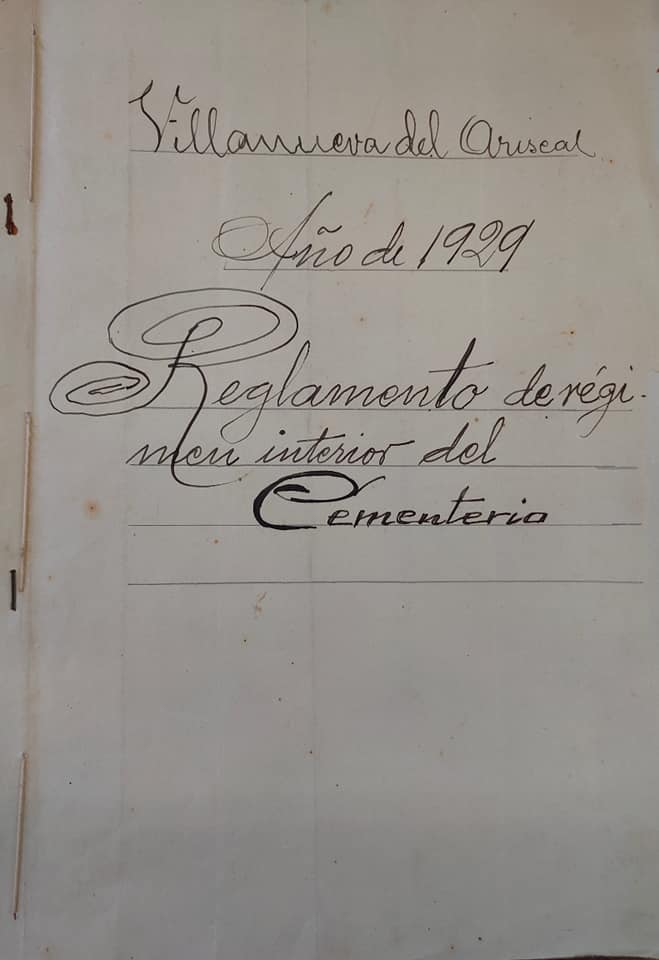 Villanueva del Ariscal
Año de 1929
Reglamento de régi-
men interior del
Cementerio